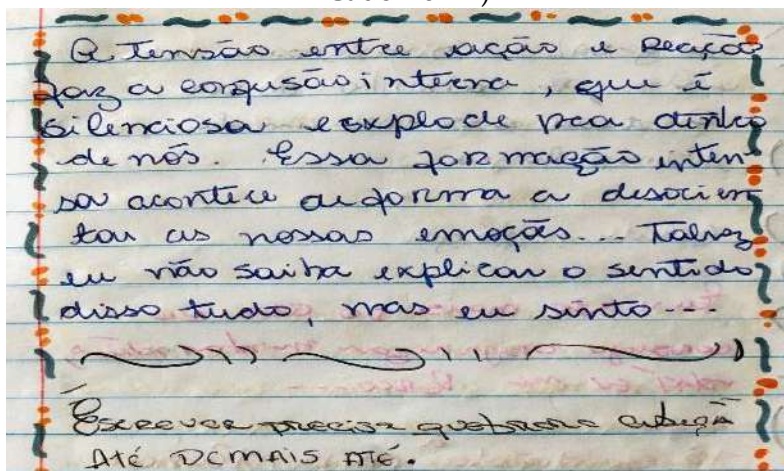 A Tensão entre ação e Reação
faz a confusão interna, que é
silenciosa e explode pra dentro
de nós. Essa formação inten-
sa acontece de forma a desorien
tar as nossas emoções... Talvez
eu não saiba explicar o sentido
disso tudo, mas eu sinto...
Escrever precisa quebrar a cabeça
ATÉ DEMAIS ATÉ.